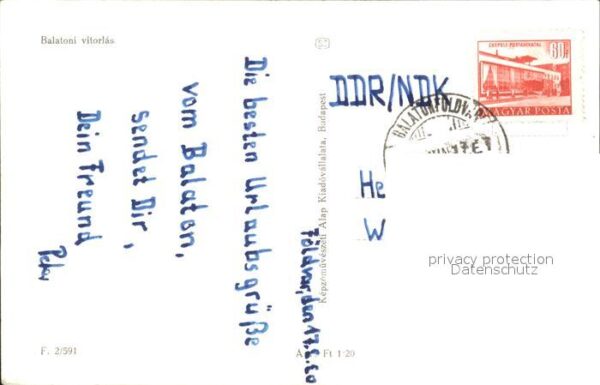 Balatoni vitorlás
Die besten Urlaubsgrüße
vom Balaton,
sendet Dir,
Dein Freund
Peter
Földvar, den 17.6.60
Képzőművészeti Alap Kiadóvállalata, Budapest
DDR/NDK
60f
MAGYAR POSTA
BALATONFÖLDVÁR
He
W
privacy protection
Datenschutz
F. 2/591
Ft 1·20